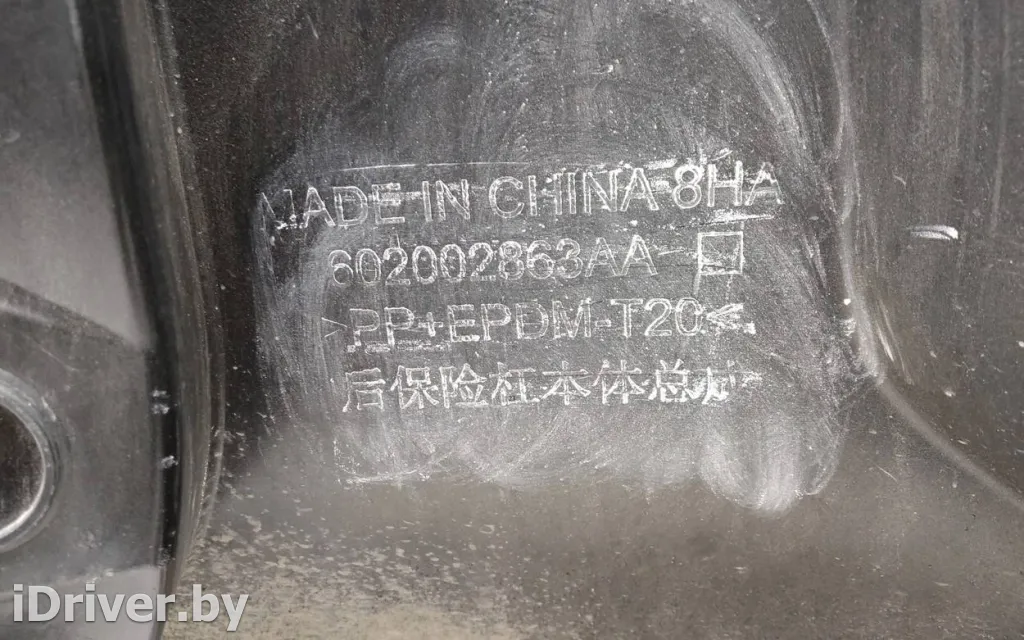 MADE IN CHINA 8HA
602002863AA
>PP+EPDM-T20<
后保险杠本体总成
iDriver.by